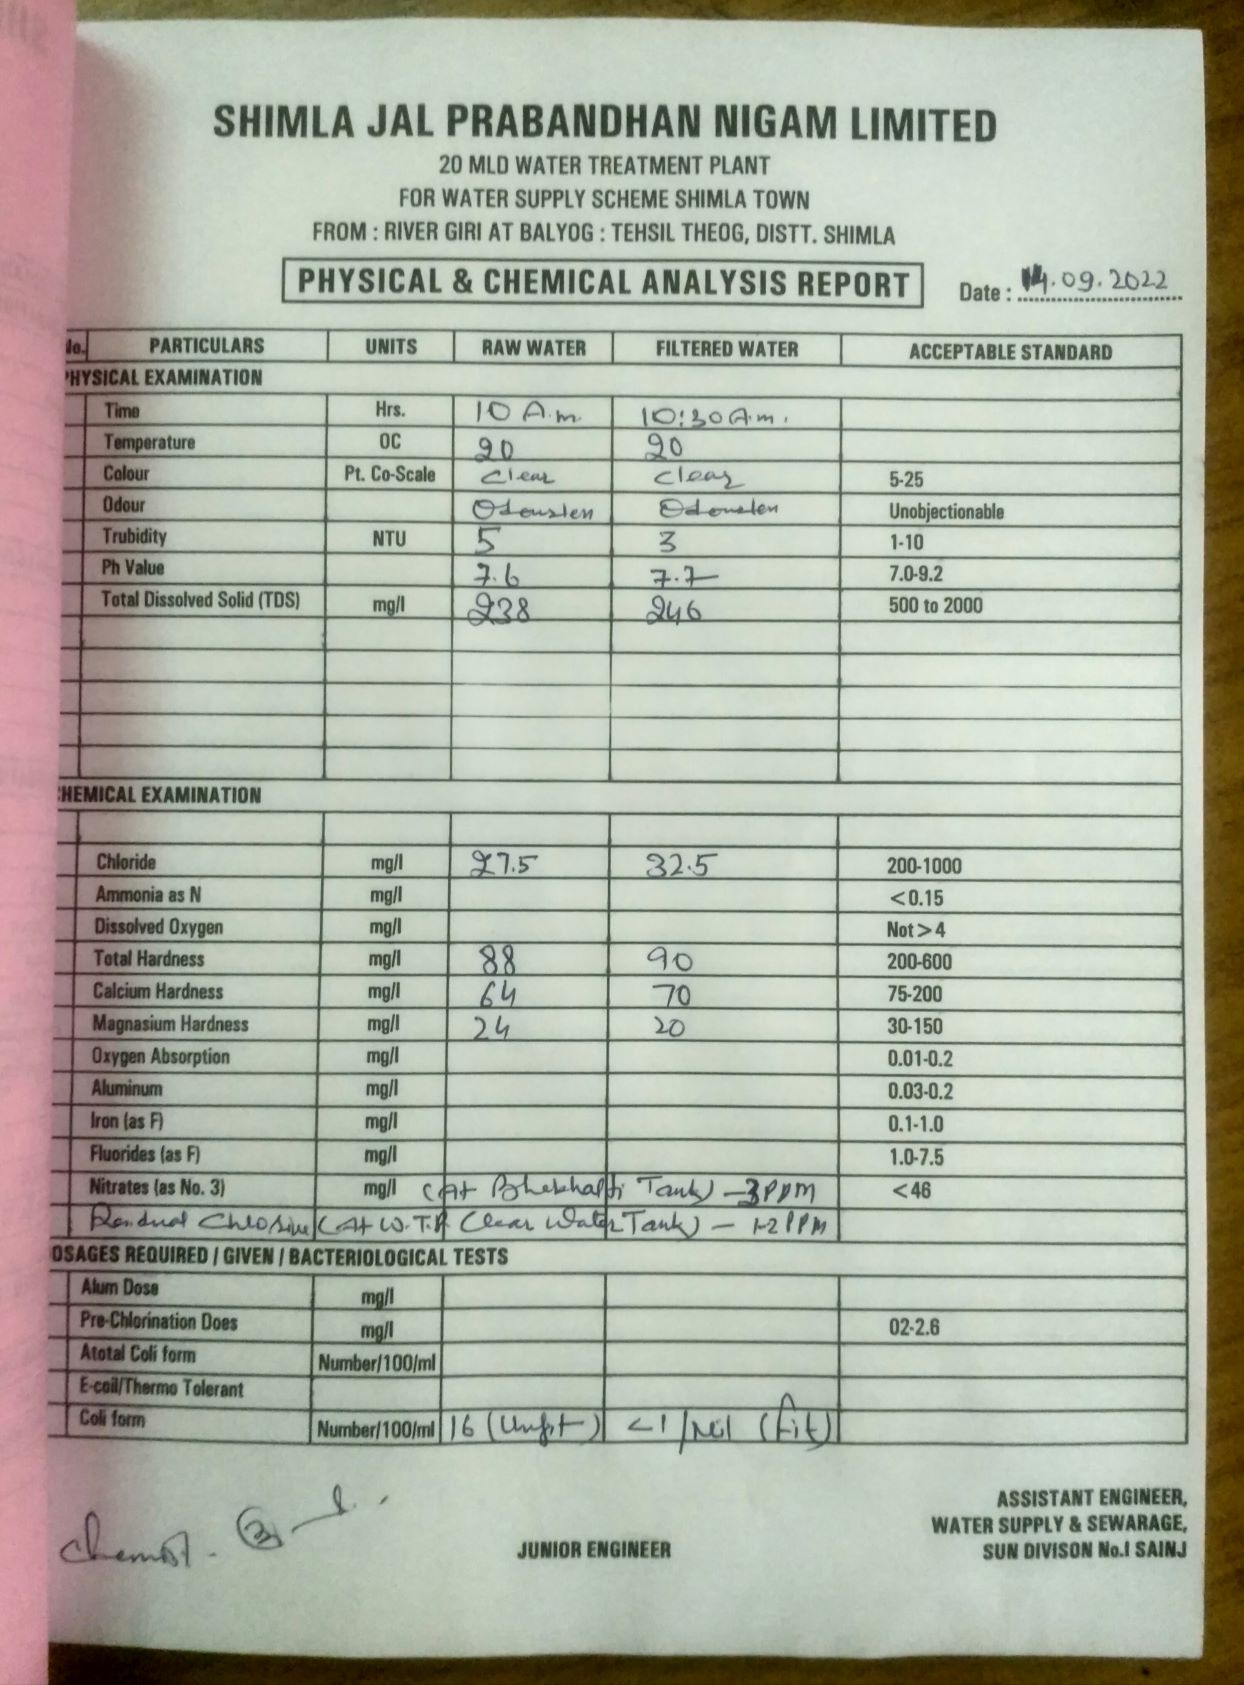 SHIMLA JAL PRABANDHAN NIGAM LIMITED
20 MLD WATER TREATMENT PLANT
FOR WATER SUPPLY SCHEME SHIMLA TOWN
FROM : RIVER GIRI AT BALYOG : TEHSIL THEOG, DISTT. SHIMLA
PHYSICAL & CHEMICAL ANALYSIS REPORT Date : 14.09.2022
No. PARTICULARS UNITS RAW WATER FILTERED WATER ACCEPTABLE STANDARD
PHYSICAL EXAMINATION
Time Hrs. 10 A.m. 10:30 A.m.
Temperature OC 20 20
Colour Pt. Co-Scale Clear Clear 5-25
Odour Unobjectionable
Trubidity NTU 5 3 1-10
Ph Value 7.6 7.7 7.0-9.2
Total Dissolved Solid (TDS) mg/l 238 246 500 to 2000
CHEMICAL EXAMINATION
Chloride mg/l 27.5 32.5 200-1000
Ammonia as N mg/l <0.15
Dissolved Oxygen mg/l Not > 4
Total Hardness mg/l 88 90 200-600
Calcium Hardness mg/l 64 70 75-200
Magnasium Hardness mg/l 24 20 30-150
Oxygen Absorption mg/l 0.01-0.2
Aluminum mg/l 0.03-0.2
Iron (as F) mg/l 0.1-1.0
Fluorides (as F) mg/l 1.0-7.5
Nitrates (as No. 3) mg/l (At Tank) - PPM <46
Residual Chlorine (At W.T.P. Clear Water Tank) - 1-2 PPM
OSAGES REQUIRED / GIVEN / BACTERIOLOGICAL TESTS
Alum Dose mg/l
Pre-Chlorination Does mg/l 02-2.6
Atotal Coli form Number/100/ml
E-coil/Thermo Tolerant
Coli form Number/100/ml 16 (Unfit) <1/Nil (fit)
Chemist.
JUNIOR ENGINEER
ASSISTANT ENGINEER,
WATER SUPPLY & SEWARAGE,
SUN DIVISON No.I SAINJ